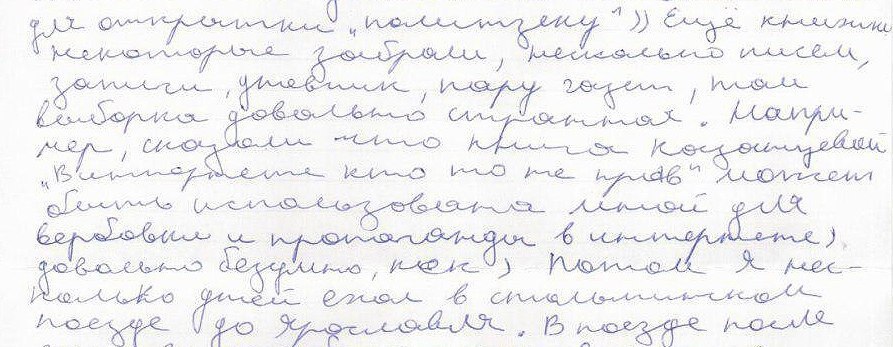 для открытки „политзеку")) Ещё книжки
некоторые забрали, несколько писем,
записи, дневник, пару газет, там
выборка довольно странная. Напри-
мер, сказали что книга Казанцевой
„В интернете кто то не прав" может
быть использована мной для
вербовки и пропаганды в интернете).
довольно безумно, как) Потом я нес-
колько дней ехал в столыпинском
поезде до Ярославля. В поезде после